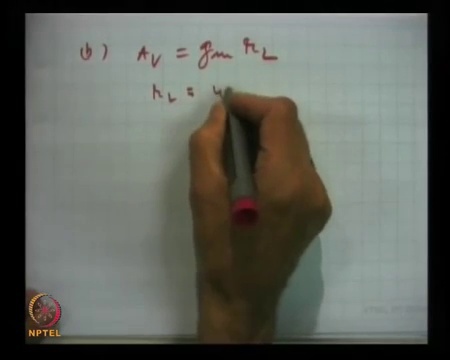 (b) Av = gm rL
rL = 4
NPTEL